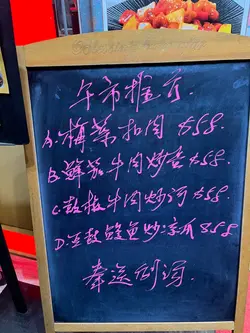 午市推介
A. 梅菜扣肉 $58
B. 鲜茄牛肉炒蛋 $58
C. 豉椒牛肉炒河 $58
D. 豆豉鲮鱼炒凉瓜 $58
奉送例汤